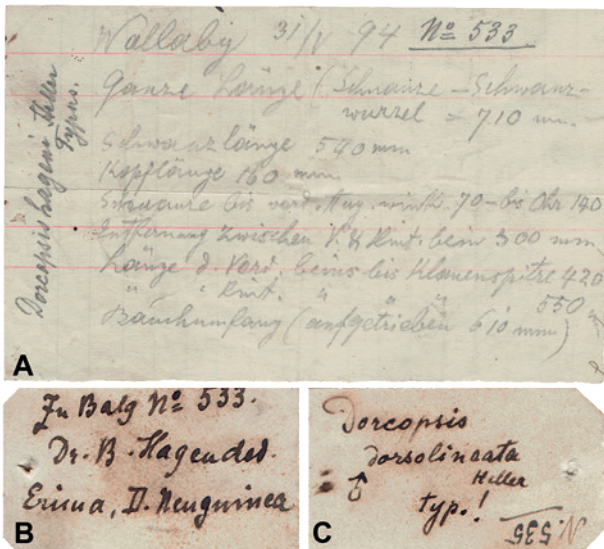 Wallaby 31/V 94 No 533
Ganze Länge (Schnauze – Schwanz-
wurzel = 710 mm.
Schwanzlänge 540 mm
Kopflänge 160 mm
Schnauze bis vord. Aug. wink. 70 – bis Ohr 140
Entfernung zwischen V. & Hint. bein 300 mm
Länge d. Vord. beins bis Klauenspitze 420
" " Hint. " " " 550 "
Bauchumfang (aufgetrieben 610 mm)
Dorcopsis hageni Heller
Typus.
A
Zu Balg No 533.
Dr. B. Hagen ded.
Erima, D. Neuguinea
B
Dorcopsis
dorsolineata
Heller
♂ typ.!
N. 535
C